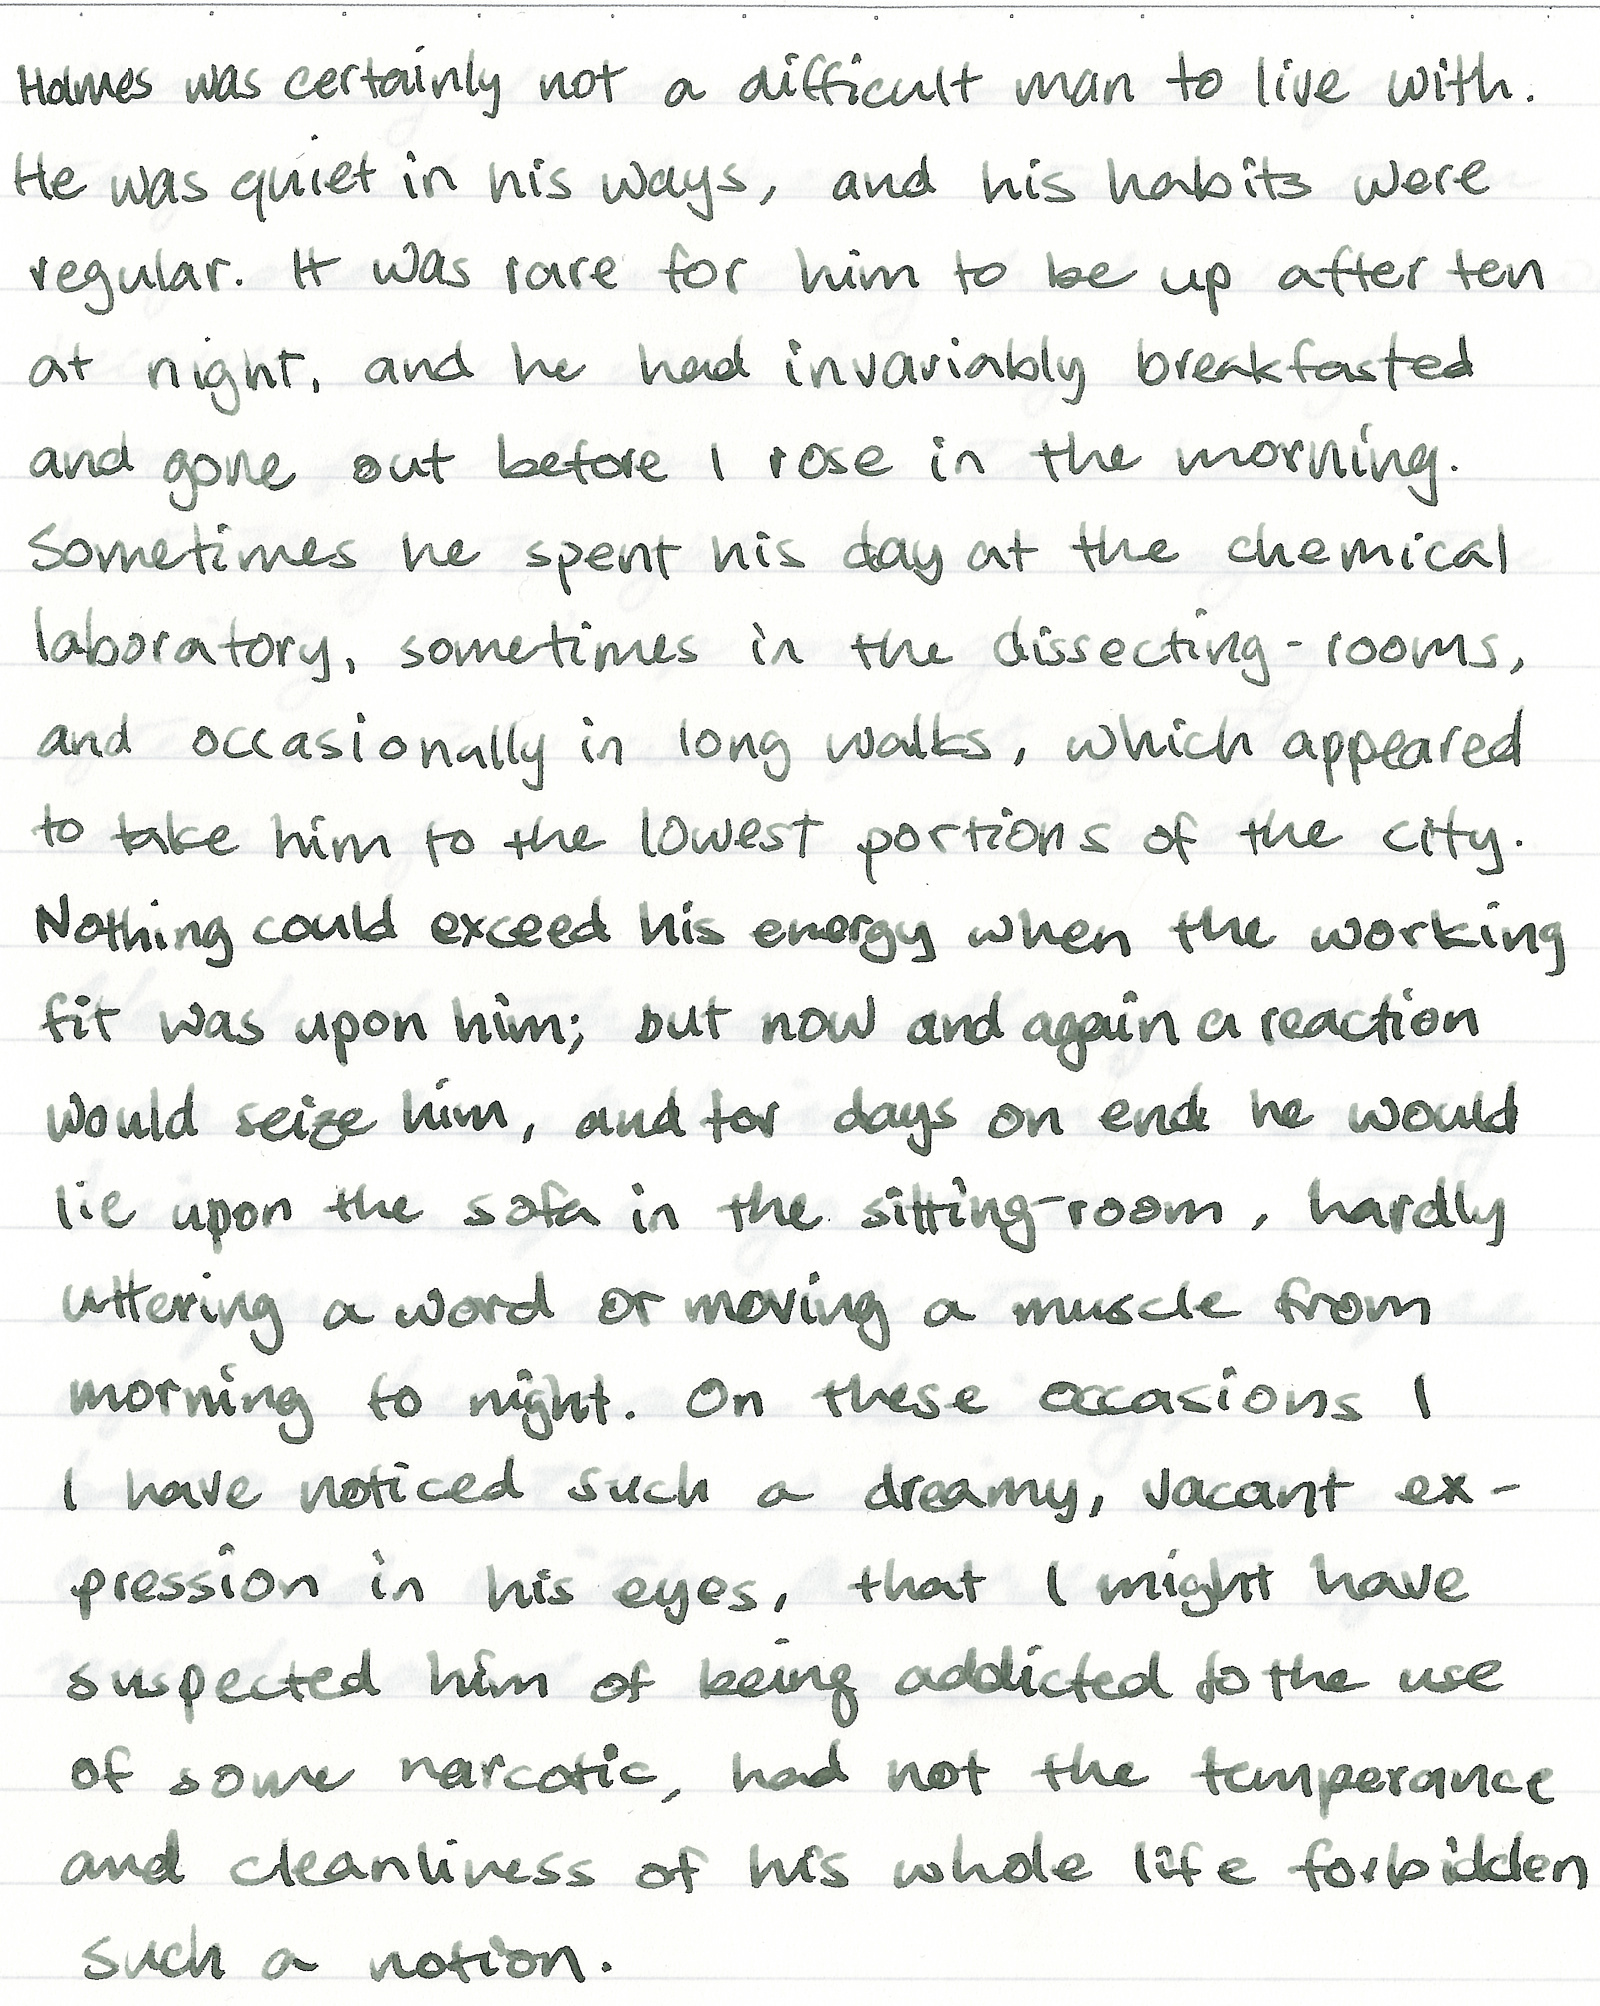 Holmes was certainly not a difficult man to live with.
He was quiet in his ways, and his habits were
regular. It was rare for him to be up after ten
at night, and he had invariably breakfasted
and gone out before I rose in the morning.
Sometimes he spent his day at the chemical
laboratory, sometimes in the dissecting-rooms,
and occasionally in long walks, which appeared
to take him to the lowest portions of the city.
Nothing could exceed his energy when the working
fit was upon him; but now and again a reaction
would seize him, and for days on end he would
lie upon the sofa in the sitting-room, hardly
uttering a word or moving a muscle from
morning to night. On these occasions I
I have noticed such a dreamy, vacant ex-
pression in his eyes, that I might have
suspected him of being addicted to the use
of some narcotic, had not the temperance
and cleanliness of his whole life forbidden
such a notion.